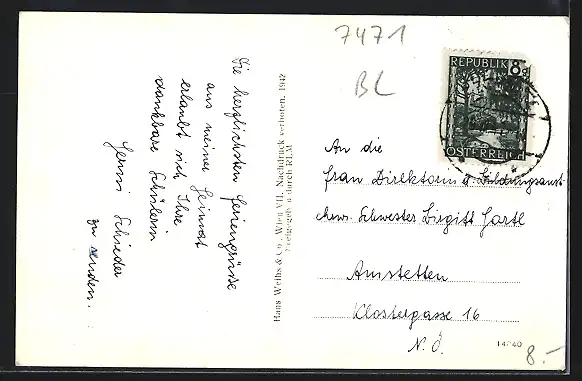 7471
BL
Die herzlichsten Feriengrüsse
aus meiner Heimat
erlaubt sich Ihre
dankbare Schülerin
Hermi Schieder
zu senden.
Hans Weihs & Co., Wien VII, Nachdruck verboten. 1942
Freigegeb. durch RLM
REPUBLIK 8g
ÖSTERREICH
An die
Frau Direktorin d. Bildungsanst.
ehrw. Schwester Birgitt Hartl
Amstetten
Klostergasse 16
N. Ö.
14040
8.-